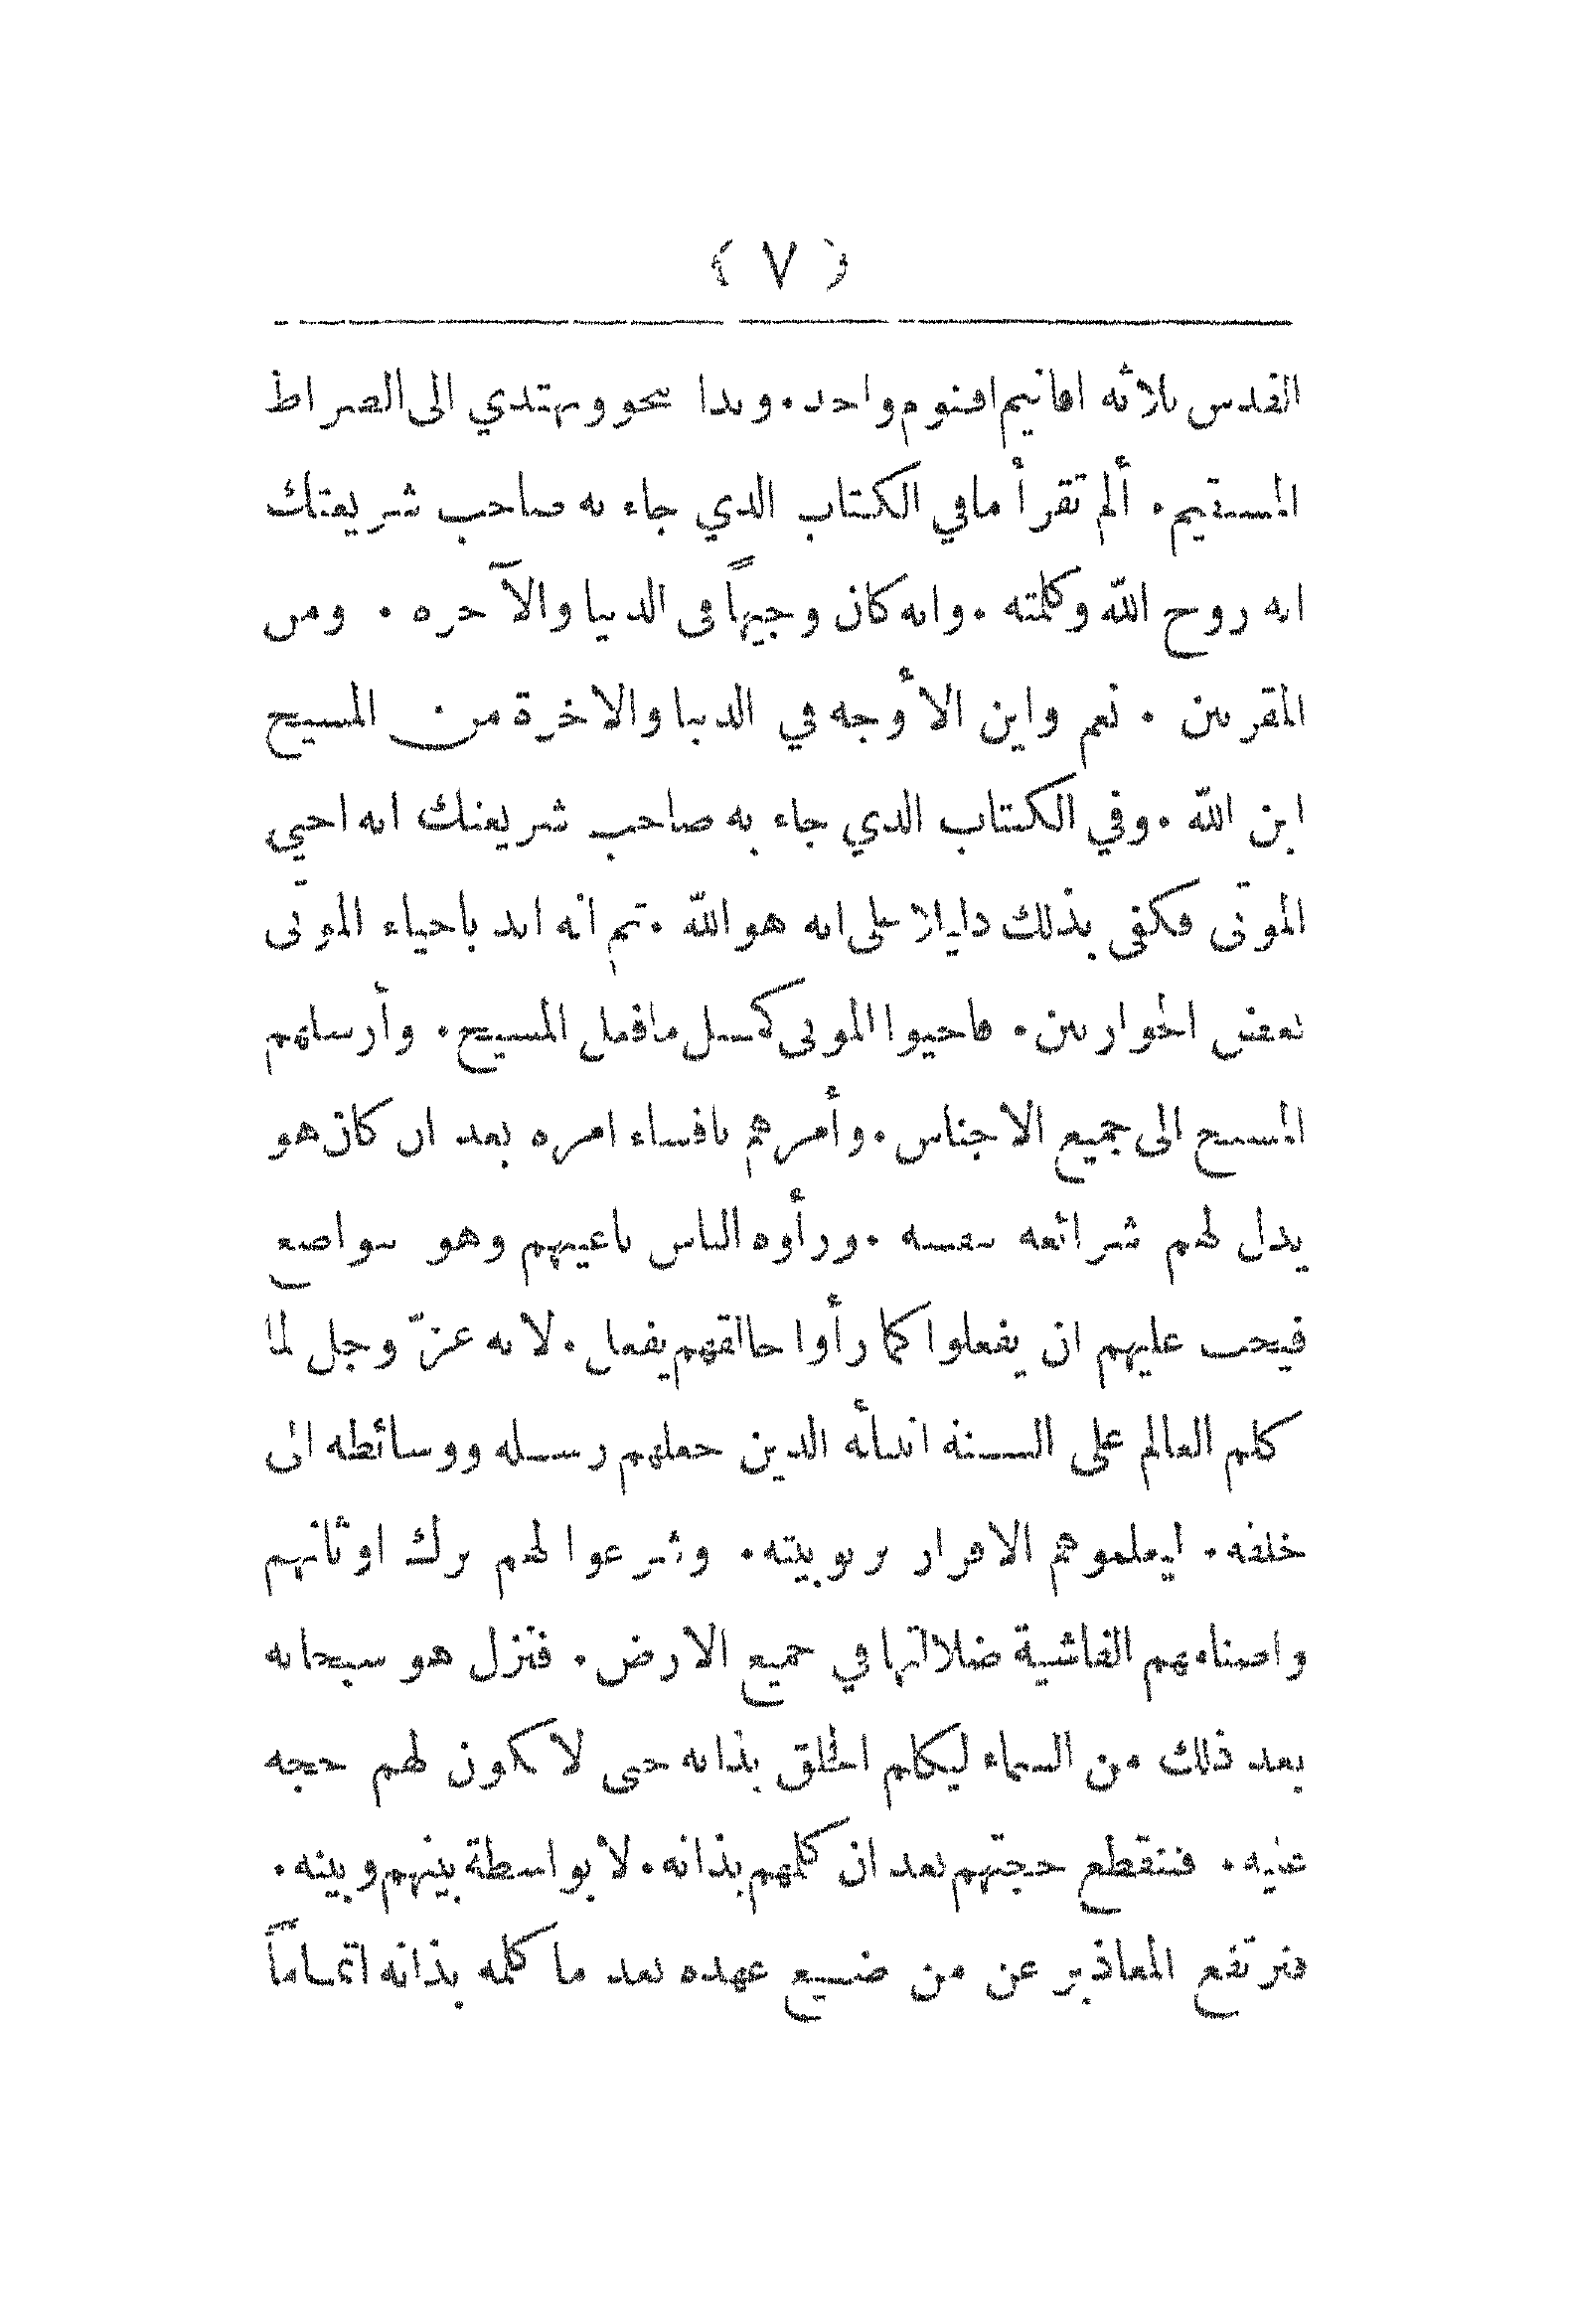 ( ٧ )
القدس ثلاثة اقانيم اقنوم واحد . وبذا تنجو وتهتدي الى الصراط
المستقيم . ألم تقرأ مافي الكتاب الذي جاء به صاحب شريعتك
انه روح الله وكلمته . وانه كان وجيهاً في الدنيا والآخره . ومن
المقربين . نعم واين الأوجه في الدنيا والاخرة من المسيح
ابن الله . وفي الكتاب الذي جاء به صاحب شريعتك انه احيي
الموتى فكفى بذلك دليلا على انه هو الله . ثم انه ايد باحياء الموتى
بعض الحواريين . فاحيوا الموتى كمثل مافعل المسيح . وأرسلهم
المسيح الى جميع الاجناس . وأمرهم بافشاء امره بعد ان كان هو
يدل لهم شرائعه بنفسه . ورأوه الناس باعينهم وهو يتواضع
فيجب عليهم ان يفعلوا كما رأوا خالقهم يفعل . لانه عزّ وجل لما
كلم العالم على السنة انبيأه الذين جعلهم رسله ووسائطه الى
خلقه . ليعلموهم الاقرار بربوبيته . وشرعوا لهم ترك اوثانهم
واصنامهم الفاشية ضلالتها في جميع الارض . فنزل هو سبحانه
بعد ذلك من السماء ليكلم الخلق بذاته حتى لا تكون لهم حجه
عليه . فتنقطع حجتهم بعد ان كلمهم بذاته . لا بواسطة بينهم وبينه .
فترتفع المعاذير عن من ضيع عهده بعد ما كلمه بذاته اتماماً